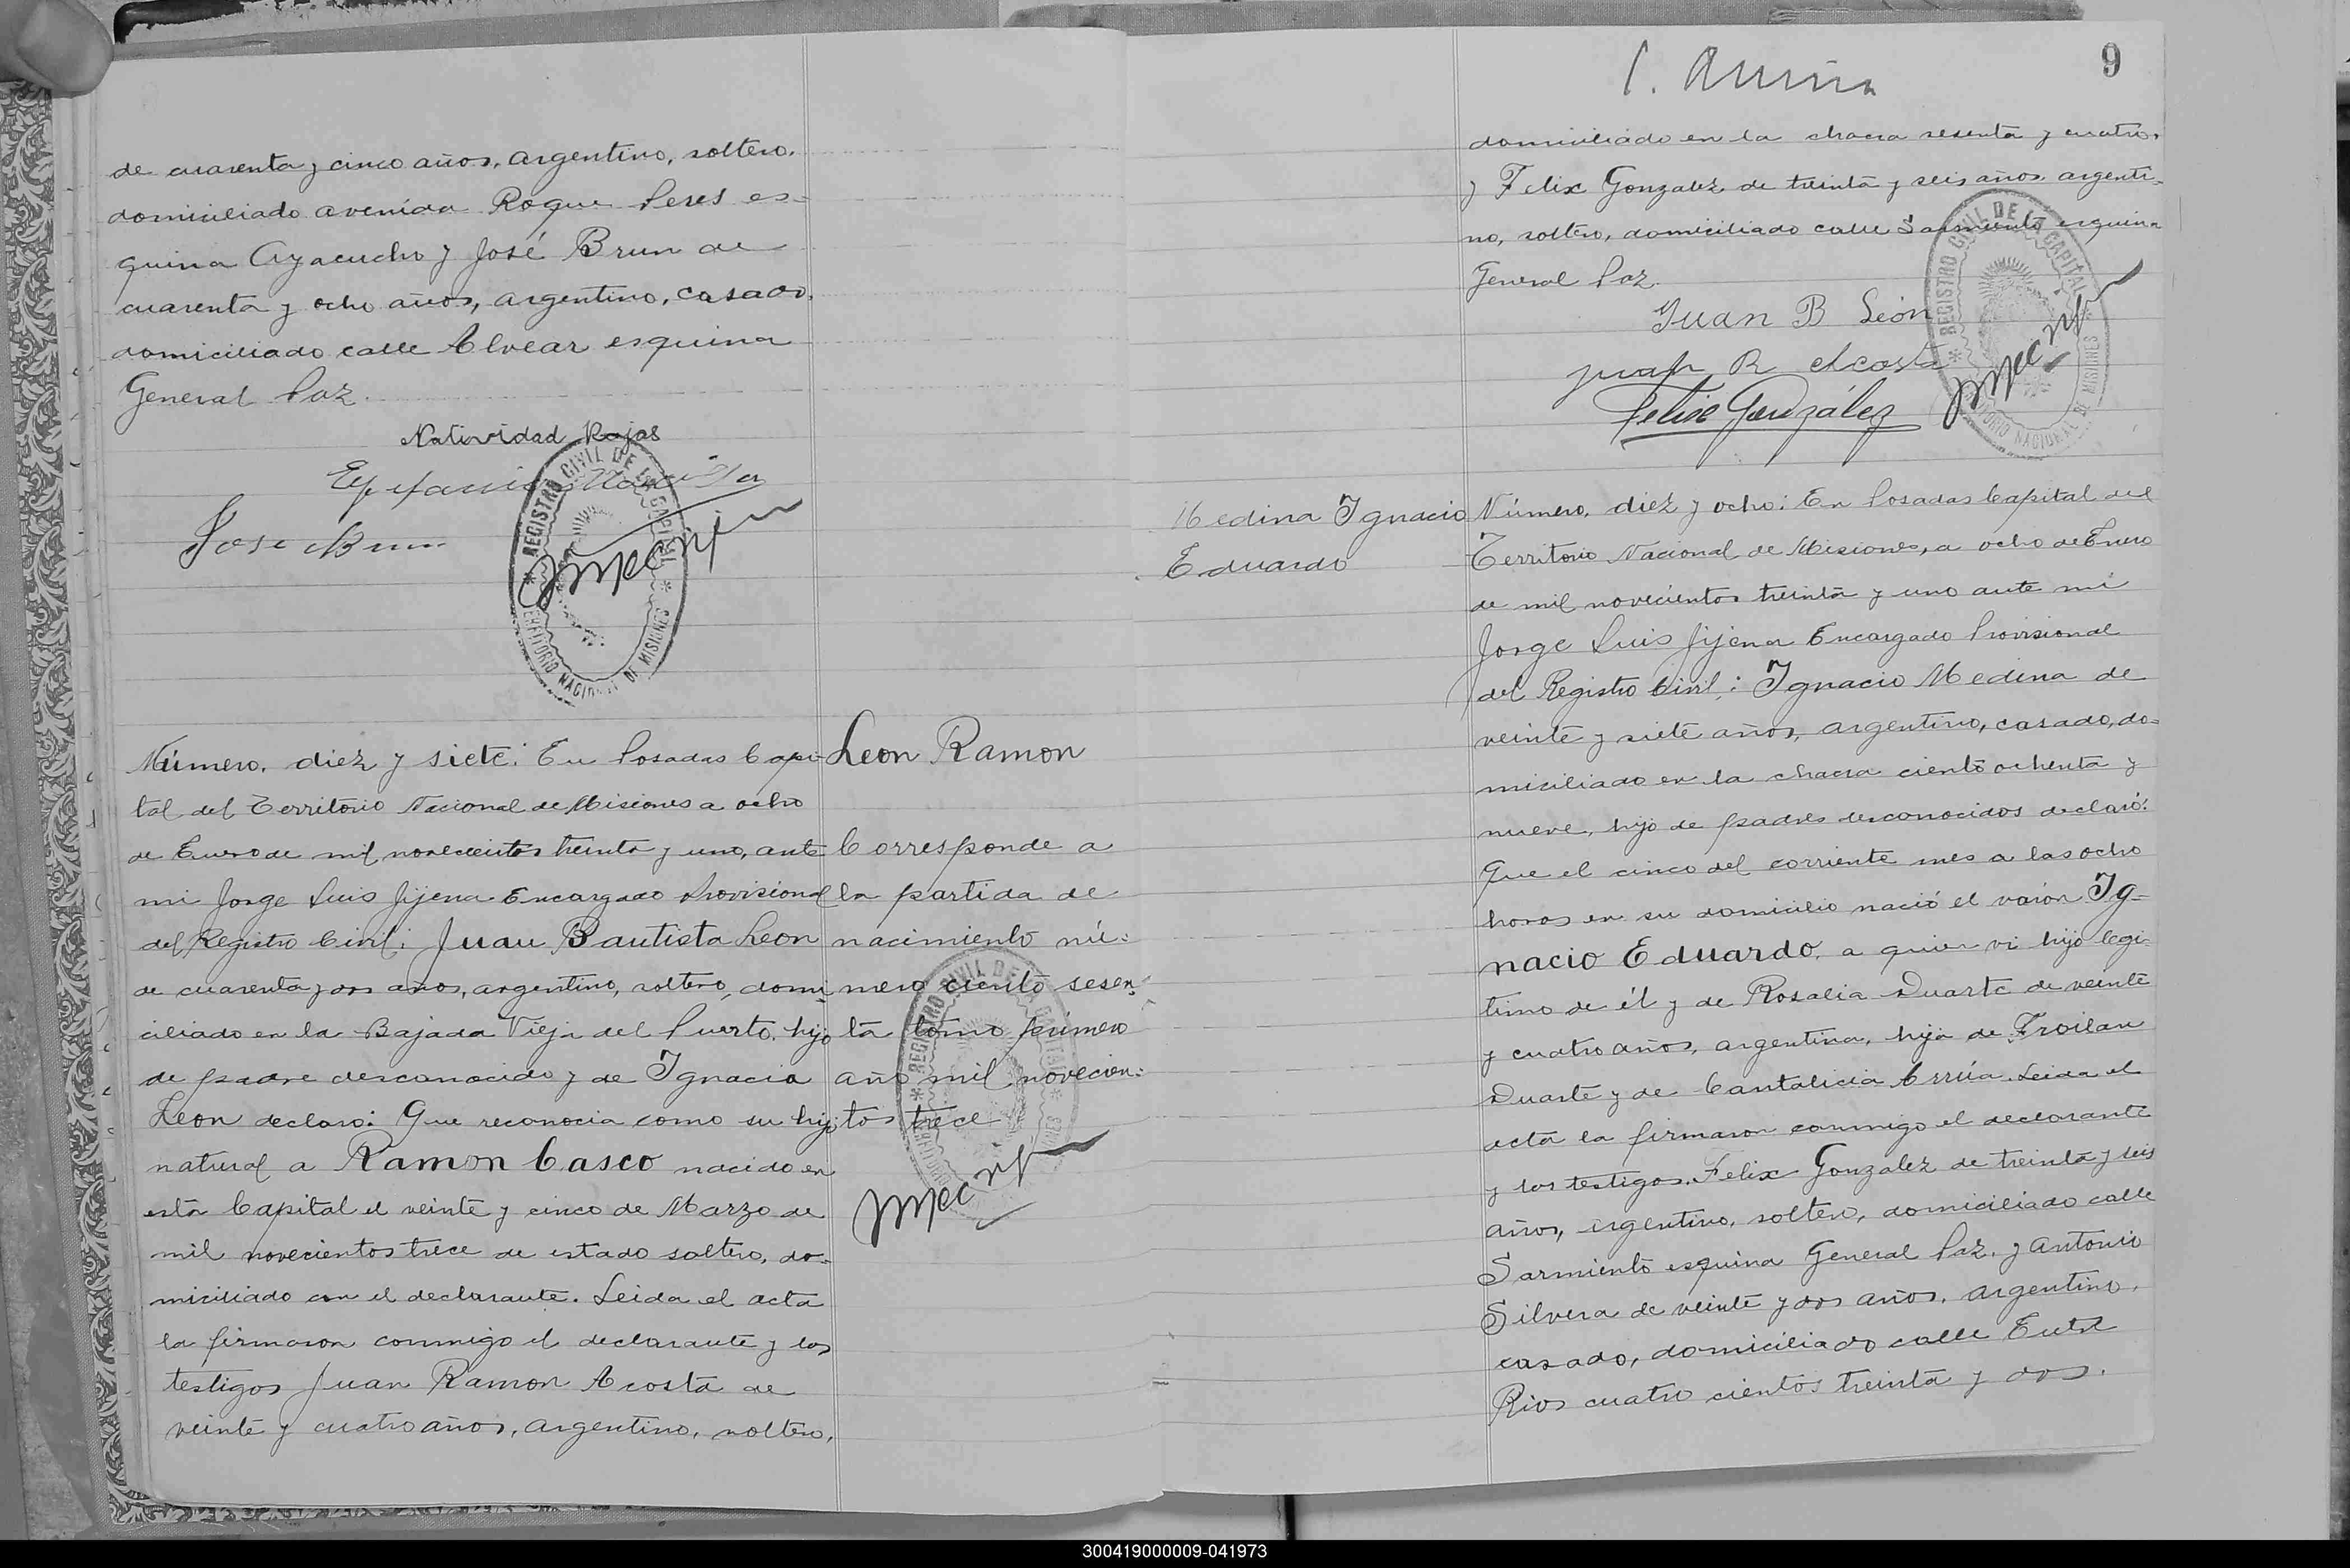 de cuarenta y cinco años, argentino, soltero,
domiciliado avenida Roque Peres es=
quina Ayacucho y José Brun de
cuarenta y ocho años, argentino, casado,
domiciliado calle Alvear esquina
General Paz.
Natividad Rojas
Jose Brun
REGISTRO CIVIL DE LA CAPITAL
TERRITORIO NACIONAL DE MISIONES
Número, diez y siete: En Posadas Capi-
tal del Territorio Nacional de Misiones a ocho
de Enero de mil novecientos treinta y uno, ante
mi Jorge Luis Jijena Encargado Provisional
del Registro Civil: Juan Bautista Leon
de cuarenta y dos años, argentino, soltero, domi-
ciliado en la Bajada Vieja del Puerto, hijo
de padre desconocido y de Ignacia
Leon declaro: Que reconocia como su hijo
natural a Ramon Casco nacido en
esta Capital el veinte y cinco de Marzo de
mil novecientos trece de estado soltero, do-
miciliado con el declarante. Leida el acta
la firmaron conmigo el declarante y los
testigos Juan Ramon Acosta de
veinte y cuatro años, argentino, soltero,
Leon Ramon
Corresponde a
la partida de
nacimiento nú=
mero ciento sesen=
ta tomo primero
año mil novecien=
tos trece
REGISTRO CIVIL DE LA CAPITAL
9
domiciliado en la chacra sesenta y cuatro,
y Felix Gonzalez de treinta y seis años argenti=
no, soltero, domiciliado calle Sarmiento esquina
General Paz.
Juan B León
Juan R Acosta
Felix González
REGISTRO CIVIL DE LA CAPITAL
TERRITORIO NACIONAL DE MISIONES
Medina Ignacio
Eduardo
Número, diez y ocho: En Posadas Capital del
Territorio Nacional de Misiones, a ocho de Enero
de mil novecientos treinta y uno ante mi
Jorge Luis Jijena Encargado Provisional
del Registro Civil,: Ignacio Medina de
veinte y siete años, argentino, casado, do=
miciliado en la chacra ciento ochenta y
nueve, hijo de padres desconocidos declaró:
Que el cinco del corriente mes a las ocho
horas en su domicilio nació el varón Ig=
nacio Eduardo, a quien vi hijo legi-
timo de él y de Rosalia Duarte de veinte
y cuatro años, argentina, hija de Froilan
Duarte y de Cantalicia Arrúa. Leida el
acta la firmaron conmigo el declarante
y los testigos. Felix Gonzalez de treinta y seis
años, argentino, soltero, domiciliado calle
Sarmiento esquina General Paz, y Antonio
Silvera de veinte y dos años, argentino,
casado, domiciliado calle Entre
Rios cuatro cientos treinta y dos.
300419000009-041973